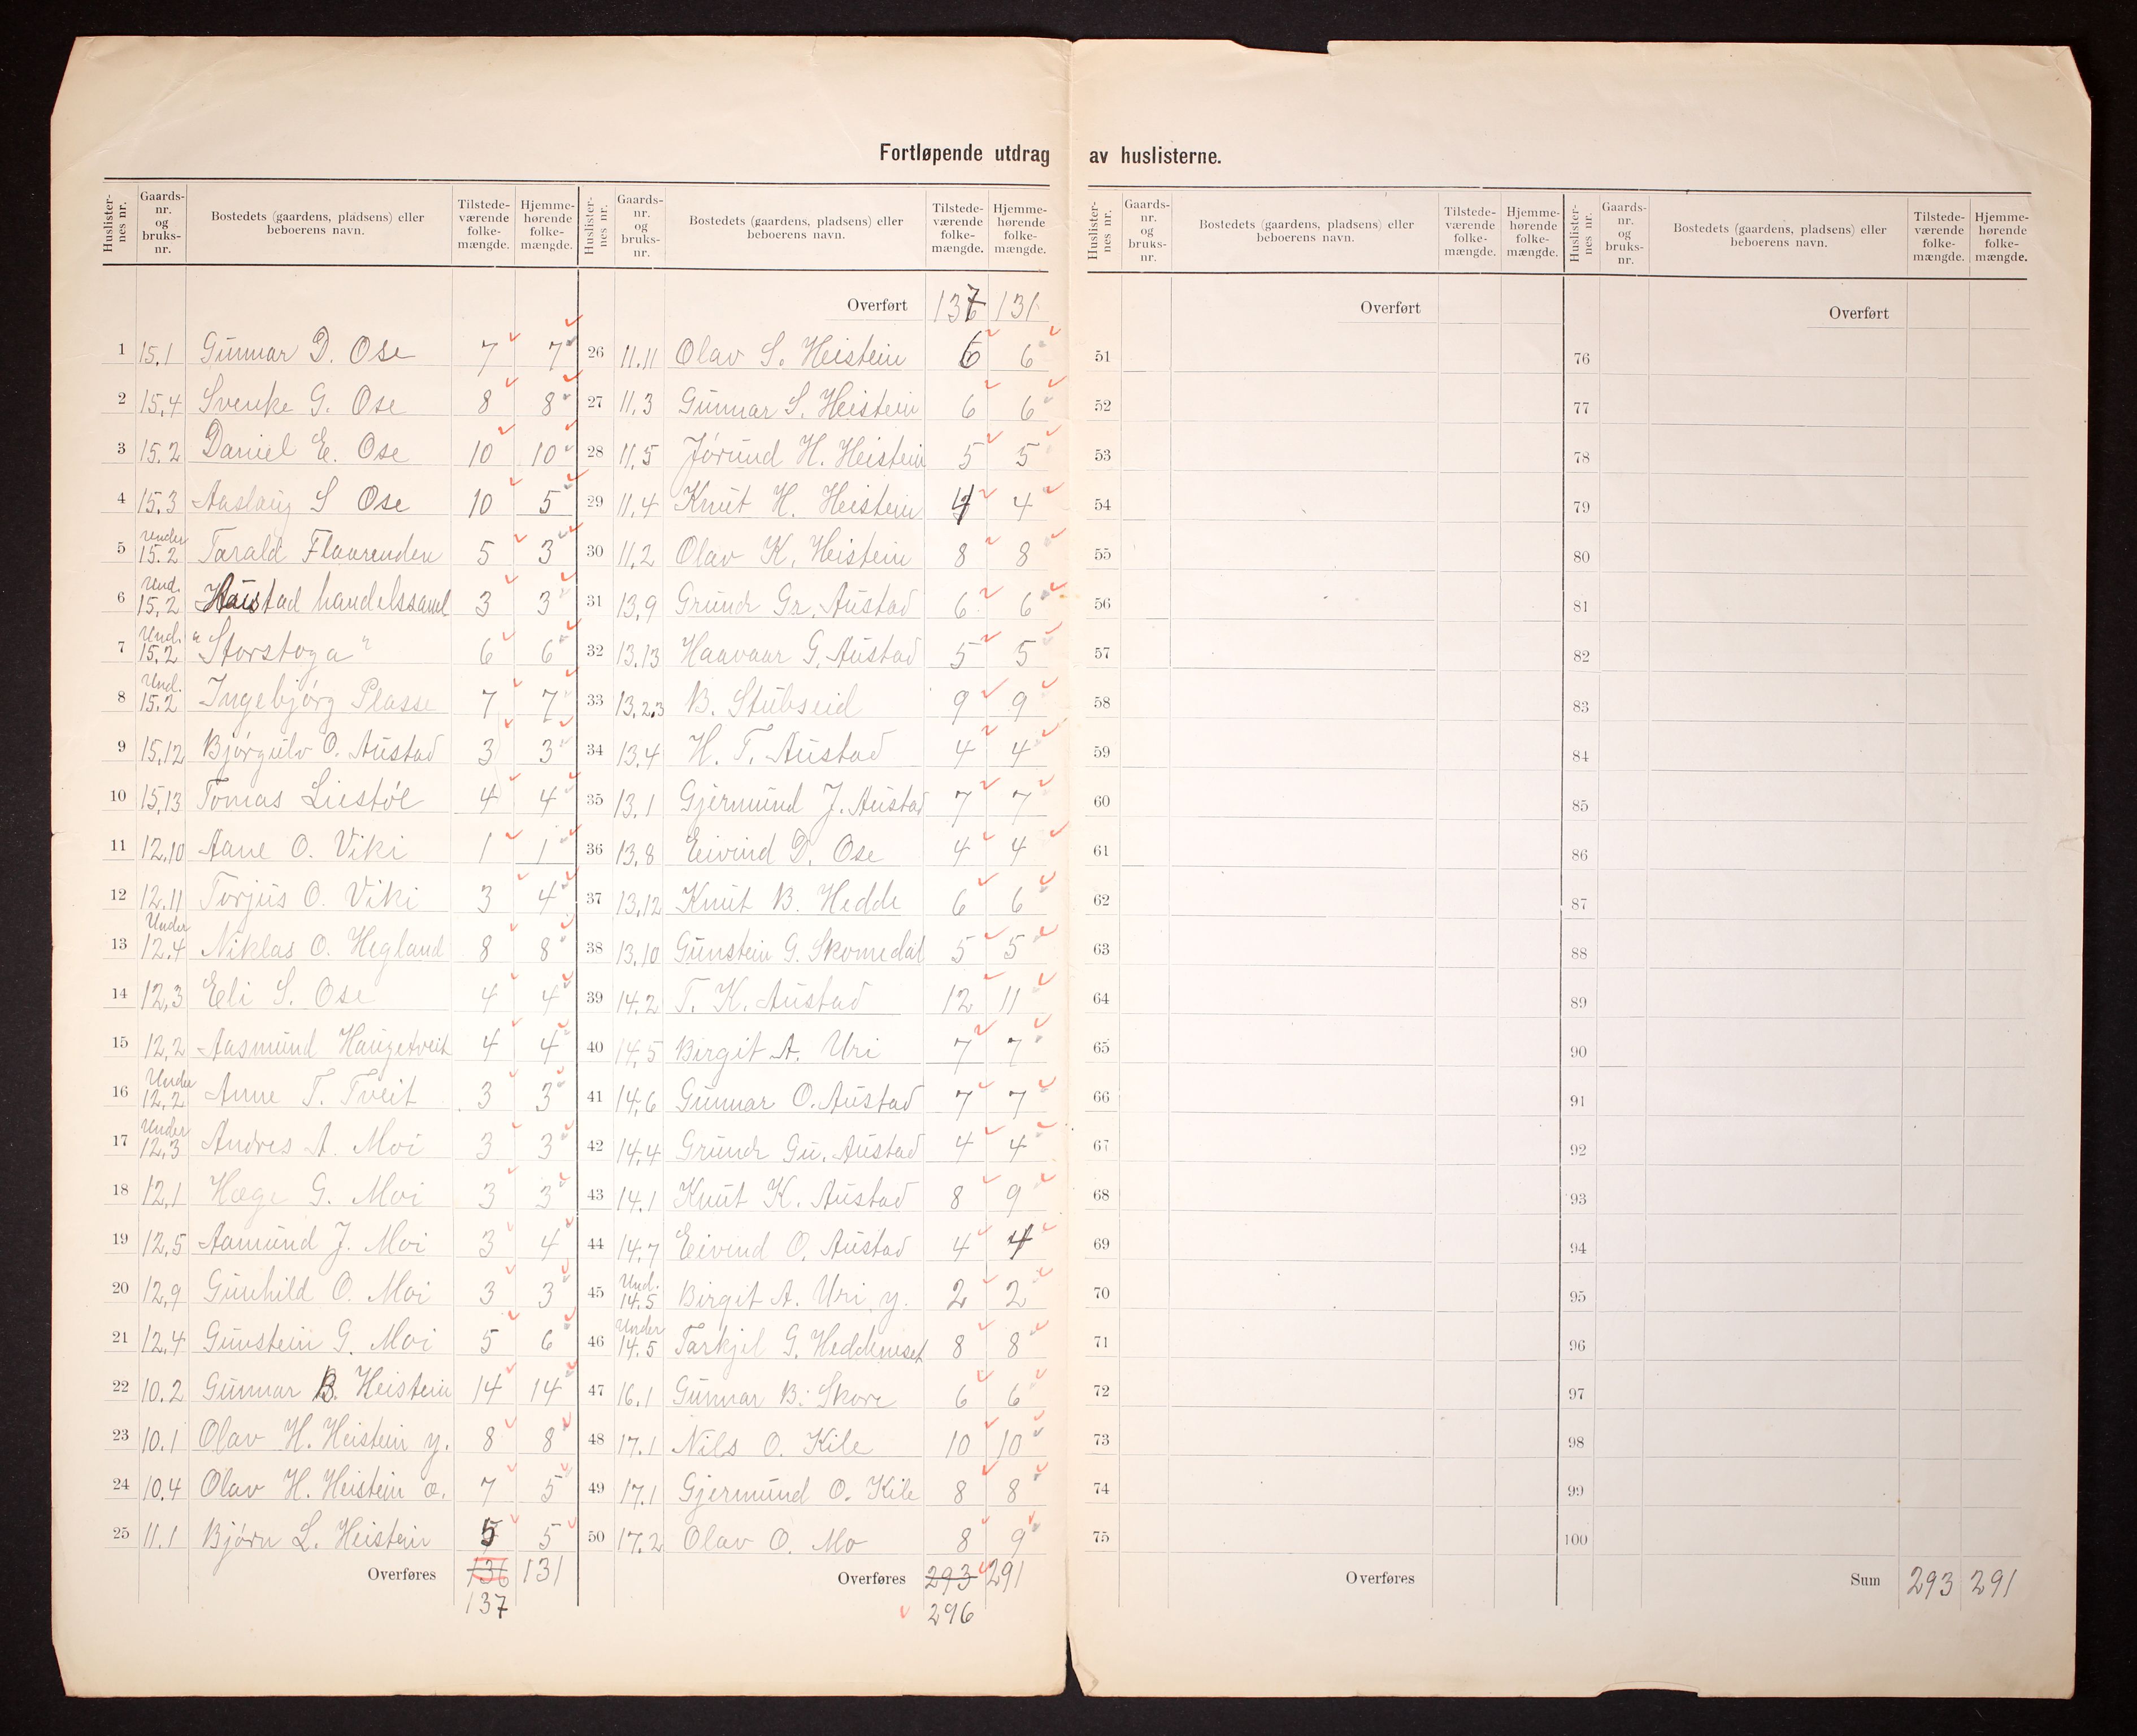 Fortløpende utdrag av huslisterne.
Huslister-nes nr. Gaards-nr. og bruks-nr. Bostedets (gaardens, pladsens) eller beboerens navn. Tilstede-værende folke-mængde. Hjemme-hørende folke-mængde.
1 15.1 Gunnar D. Ose 7 7
2 15,4 Svenke G. Ose 8 8
3 15.2 Daniel E. Ose 10 10
4 15.3 Aaslaug S Ose 10 5
5 under 15.2 Tarald Flaarenden 5 3
6 Und. 15,2 handelssaml 3 3
7 Und. 15,2 "Storstoga" 6 6
8 Und. 15.2 Ingebjørg Plasse 7 7
9 15,12 Bjørgulv O. Austad 3 3
10 15,13 Tomas Liestøl 4 4
11 12,10 Aane O. Viki 1 1
12 12.11 Torjus O. Viki 3 4
13 Under 12.4 Niklas O. Hegland 8 8
14 12,3 Eeli S. Ose 4 4
15 12,2 Aasmund Haugetveit 4 4
16 Under 12,2 Anne T. Tveit 3 3
17 Under 12,3 Andres A. Moi 3 3
18 12,1 Hæge G. Moi 3 3
19 12,5 Aamund J. Moi 3 4
20 12,9 Gunhild O. Moi 3 3
21 12,4 Gunstein G. Moi 5 6
22 10.2 Gunnar B. Heistein 14 14
23 10.1 Olav H. Heistein y. 8 8
24 10.4 Olav H. Heistein æ. 7 5
25 11.1 Bjørn L. Heistein 5 5
Overføres 136 131
137
Huslister-nes nr. Gaards-nr. og bruks-nr. Bostedets (gaardens, pladsens) eller beboerens navn. Tilstede-værende folke-mængde. Hjemme-hørende folke-mængde.
Overført 137 131
26 11.11 Olav S. Heistein 6 6
27 11,3 Gunnar S. Heistein 6 6
28 11,5 Jørund H. Heistein 5 5
29 11,4 Knut H. Heistein 4 4
30 11,2 Olav K. Heistein 8 8
31 13,9 Grundr Gr. Austad 6 6
32 13.13 Haavaar G. Austad 5 5
33 13,2,3 B. Stubseid 9 9
34 13,4 H. T. Austad 4 4
35 13,1 Gjermund J. Austad 7 7
36 13,8 Eivind D. Ose 4 4
37 13,12 Knut B. Hedde 6 6
38 13,10 Gunstein G. Skomedal 5 5
39 14.2 T. K. Austad 12 11
40 14,5 Birgit A. Uri 7 7
41 14,6 Gunnar O. Austad 7 7
42 14,4 Grundr Gu. Austad 4 4
43 14.1 Knut K. Austad 8 9
44 14,7 Eivind O. Austad 4 4
45 Und. 14.5 Birgit A. Uri y. 2 2
46 Under 14.5 Tarkjel G. Heddeneset 8 8
47 16.1 Gunnar B. Skore 6 6
48 17.1 Nils O. Kile 10 10
49 17.1 Gjermund O. Kile 8 8
50 17.2 Olav O. Mo 8 9
Overføres 293 291
296
Huslister-nes nr. Gaards-nr. og bruks-nr. Bostedets (gaardens, pladsens) eller beboerens navn. Tilstede-værende folke-mængde. Hjemme-hørende folke-mængde.
Overført
51
52
53
54
55
56
57
58
59
60
61
62
63
64
65
66
67
68
69
70
71
72
73
74
75
Overføres
Huslister-nes nr. Gaards-nr. og bruks-nr. Bostedets (gaardens, pladsens) eller beboerens navn. Tilstede-værende folke-mængde. Hjemme-hørende folke-mængde.
Overført
76
77
78
79
80
81
82
83
84
85
86
87
88
89
90
91
92
93
94
95
96
97
98
99
100
Sum 293 291